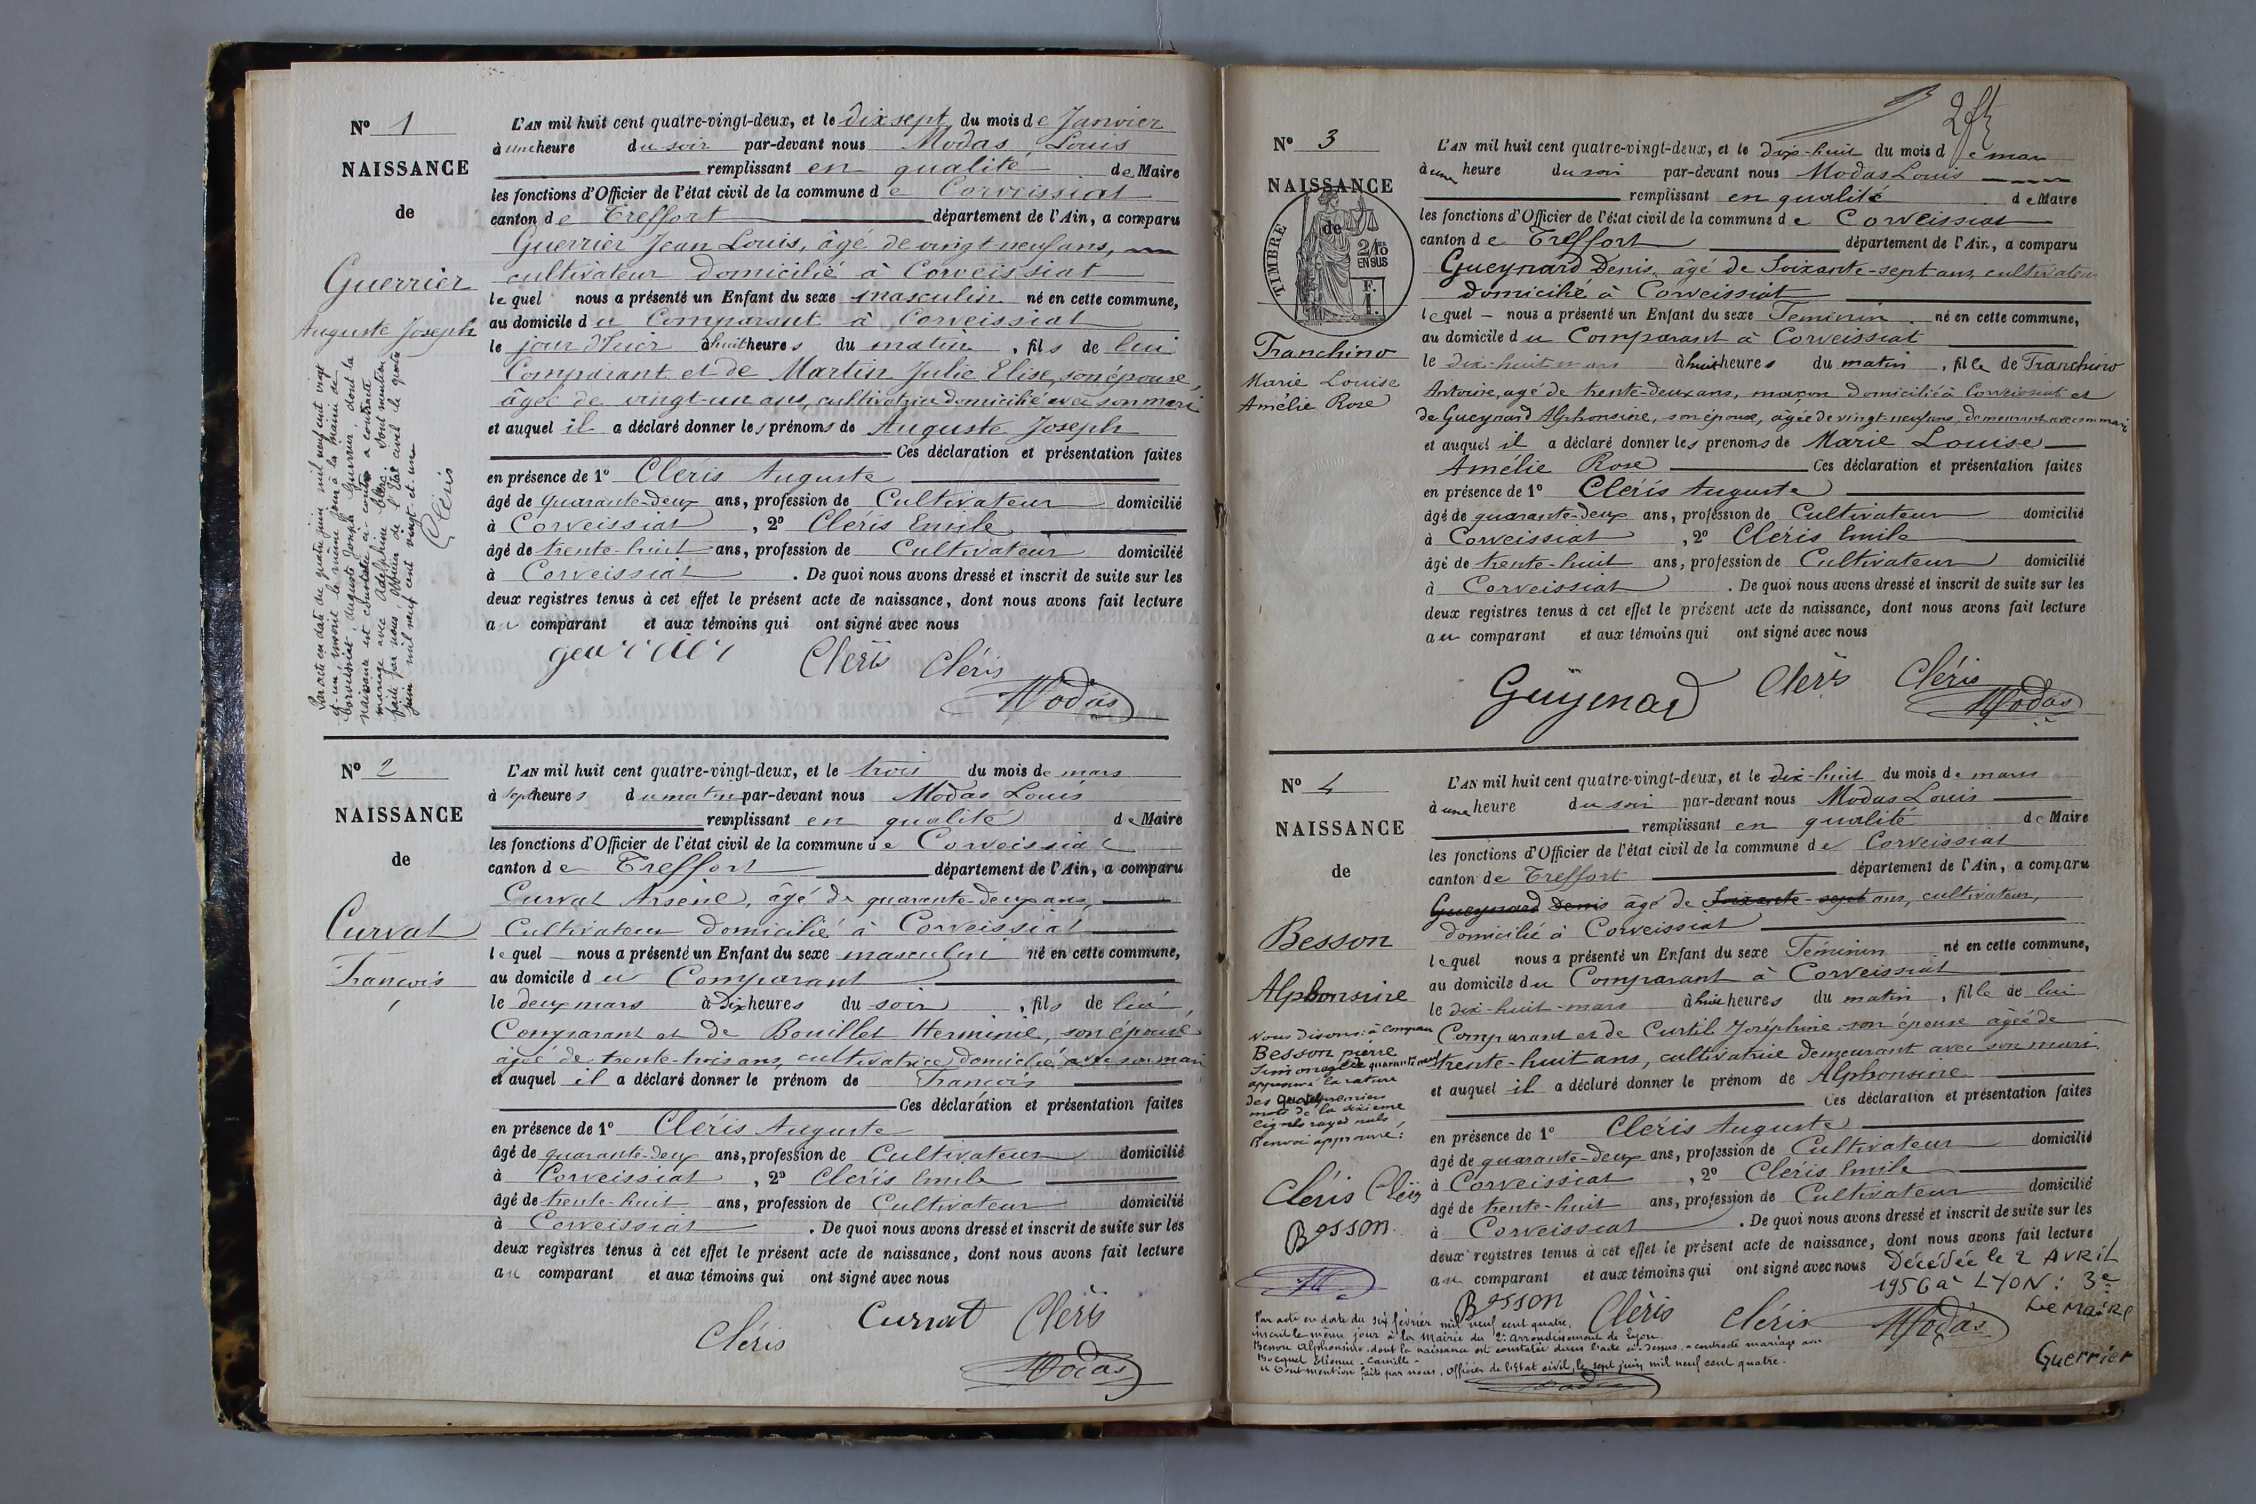 Nº 1
NAISSANCE
de
Guerrier
Auguste Joseph
Par acte en date du quatre juin mil neuf cent vingt
et un inscrit le même jour à la mairie de
Corveissiat, Auguste Joseph Guerrier, dont la
naissance est constatée ci-contre a contracté
mariage avec Adelphine Blanc. Dont mention
faite par nous Officier de l'Etat civil le quatre
juin mil neuf cent vingt et un
Cléris
L'AN mil huit cent quatre-vingt-deux, et le dix sept du mois de Janvier
à une heure du soir par-devant nous Modas Louis
remplissant en qualité de Maire
les fonctions d'Officier de l'état civil de la commune de Corveissiat
canton de Treffort département de l'Ain, a comparu
Guerrier Jean Louis, âgé de vingt-neuf ans,
cultivateur domicilié à Corveissiat
lequel nous a présenté un Enfant du sexe masculin né en cette commune,
au domicile du Comparant à Corveissiat
le jour d'hier à huit heures du matin, fils de lui
Comparant et de Martin Julie Elise, son épouse,
âgée de vingt-un ans, cultivatrice domicilié avec son mari
et auquel il a déclaré donner les prénoms de Auguste Joseph
Ces déclaration et présentation faites
en présence de 1º Cléris Auguste
âgé de quarante-deux ans, profession de Cultivateur domicilié
à Corveissiat, 2º Cléris Emile
âgé de trente-huit ans, profession de Cultivateur domicilié
à Corveissiat. De quoi nous avons dressé et inscrit de suite sur les
deux registres tenus à cet effet le présent acte de naissance, dont nous avons fait lecture
au comparant et aux témoins qui ont signé avec nous
Cléris Cléris
Modas
Nº 2
NAISSANCE
de
Curvat
François
L'AN mil huit cent quatre-vingt-deux, et le trois du mois de mars
à sept heures du matin par-devant nous Modas Louis
remplissant en qualité de Maire
les fonctions d'Officier de l'état civil de la commune de Corveissiat
canton de Treffort département de l'Ain, a comparu
Curvat Arsène, âgé de quarante-deux ans,
Cultivateur domicilié à Corveissiat
lequel nous a présenté un Enfant du sexe masculin né en cette commune,
au domicile du Comparant
le deux mars à Dix heures du soir, fils de lui
Comparant et de Bouillet Herminie, son épouse
âgée de trente-trois ans, cultivatrice domicilié avec son mari
et auquel il a déclaré donner le prénom de François
Ces déclaration et présentation faites
en présence de 1º Cléris Auguste
âgé de quarante-deux ans, profession de Cultivateur domicilié
à Corveissiat, 2º Cléris Emile
âgé de trente-huit ans, profession de Cultivateur domicilié
à Corveissiat. De quoi nous avons dressé et inscrit de suite sur les
deux registres tenus à cet effet le présent acte de naissance, dont nous avons fait lecture
au comparant et aux témoins qui ont signé avec nous
Cléris Curvat Cléris
Modas
Nº 3
NAISSANCE
de
TIMBRE
2/10
EN SUS
F.
1.
Franchino
Marie Louise
Amélie Rose
L'AN mil huit cent quatre-vingt-deux, et le dix-huit du mois de mars
à une heure du soir par-devant nous Modas Louis
remplissant en qualité de Maire
les fonctions d'Officier de l'état civil de la commune de Corveissiat
canton de Treffort département de l'Ain, a comparu
Gueynard Denis, âgé de Soixante-sept ans, cultivateur
domicilié à Corveissiat
lequel nous a présenté un Enfant du sexe Féminin né en cette commune,
au domicile du Comparant à Corveissiat
le dix-huit mars à huit heures du matin, fille de Franchino
Antoine, agé de trente-deux ans, maçon domicilié à Corveissiat et
de Gueynard Alphonsine, son épouse, âgée de vingt-neuf ans, demeurant avec son mari
et auquel il a déclaré donner les prenoms de Marie Louise
Amélie Rose Ces déclaration et présentation faites
en présence de 1º Cléris Auguste
âgé de quarante-deux ans, profession de Cultivateur domicilié
à Corveissiat, 2º Cléris Emile
âgé de trente-huit ans, profession de Cultivateur domicilié
à Corveissiat. De quoi nous avons dressé et inscrit de suite sur les
deux registres tenus à cet effet le présent acte de naissance, dont nous avons fait lecture
au comparant et aux témoins qui ont signé avec nous
Cléris Cléris
Modas
Nº 4
NAISSANCE
de
Besson
Alphonsine
Nous disons: à Comparu
Besson pierre
Simon agé de quarante neuf
approuvé la rature
des quatre premiers
mots de la dixième
Lignes rayés nuls
Renvoi approuvé:
Cléris Cléris
Besson
L'AN mil huit cent quatre-vingt-deux, et le dix-huit du mois de mars
à une heure du soir par-devant nous Modas Louis
remplissant en qualité de Maire
les fonctions d'Officier de l'état civil de la commune de Corveissiat
canton de Treffort département de l'Ain, a comparu
Gueynard Denis âgé de Soixante-sept ans, cultivateur,
domicilié à Corveissiat
lequel nous a présenté un Enfant du sexe Féminin né en cette commune,
au domicile du Comparant à Corveissiat
le dix-huit-mars à huit heures du matin, fille de lui
Comparant et de Curtil Joséphine son épouse âgée de
trente-huit ans, cultivatrice demeurant avec son mari.
et auquel il a déclaré donner le prénom de Alphonsine
Ces déclaration et présentation faites
en présence de 1º Cléris Auguste
âgé de quarante-deux ans, profession de Cultivateur domicilié
à Corveissiat, 2º Cléris Emile
âgé de trente-huit ans, profession de Cultivateur domicilié
à Corveissiat. De quoi nous avons dressé et inscrit de suite sur les
deux registres tenus à cet effet le présent acte de naissance, dont nous avons fait lecture
au comparant et aux témoins qui ont signé avec nous
Décédée le 2 AVRIL
1956 à LYON: 3e
Le Maire
Guerrier
Besson Cléris Cléris Modas
Par acte en date du six février mil neuf cent quatre,
inscrit le même jour à la Mairie du 2e arrondissement de Lyon,
Besson Alphonsine, dont la naissance est constatée dans l'acte ci-dessus, a contracté mariage avec
Bocquet Etienne-Camille.
Dont mention faite par nous, Officier de l'Etat civil, le sept juin mil neuf cent quatre.